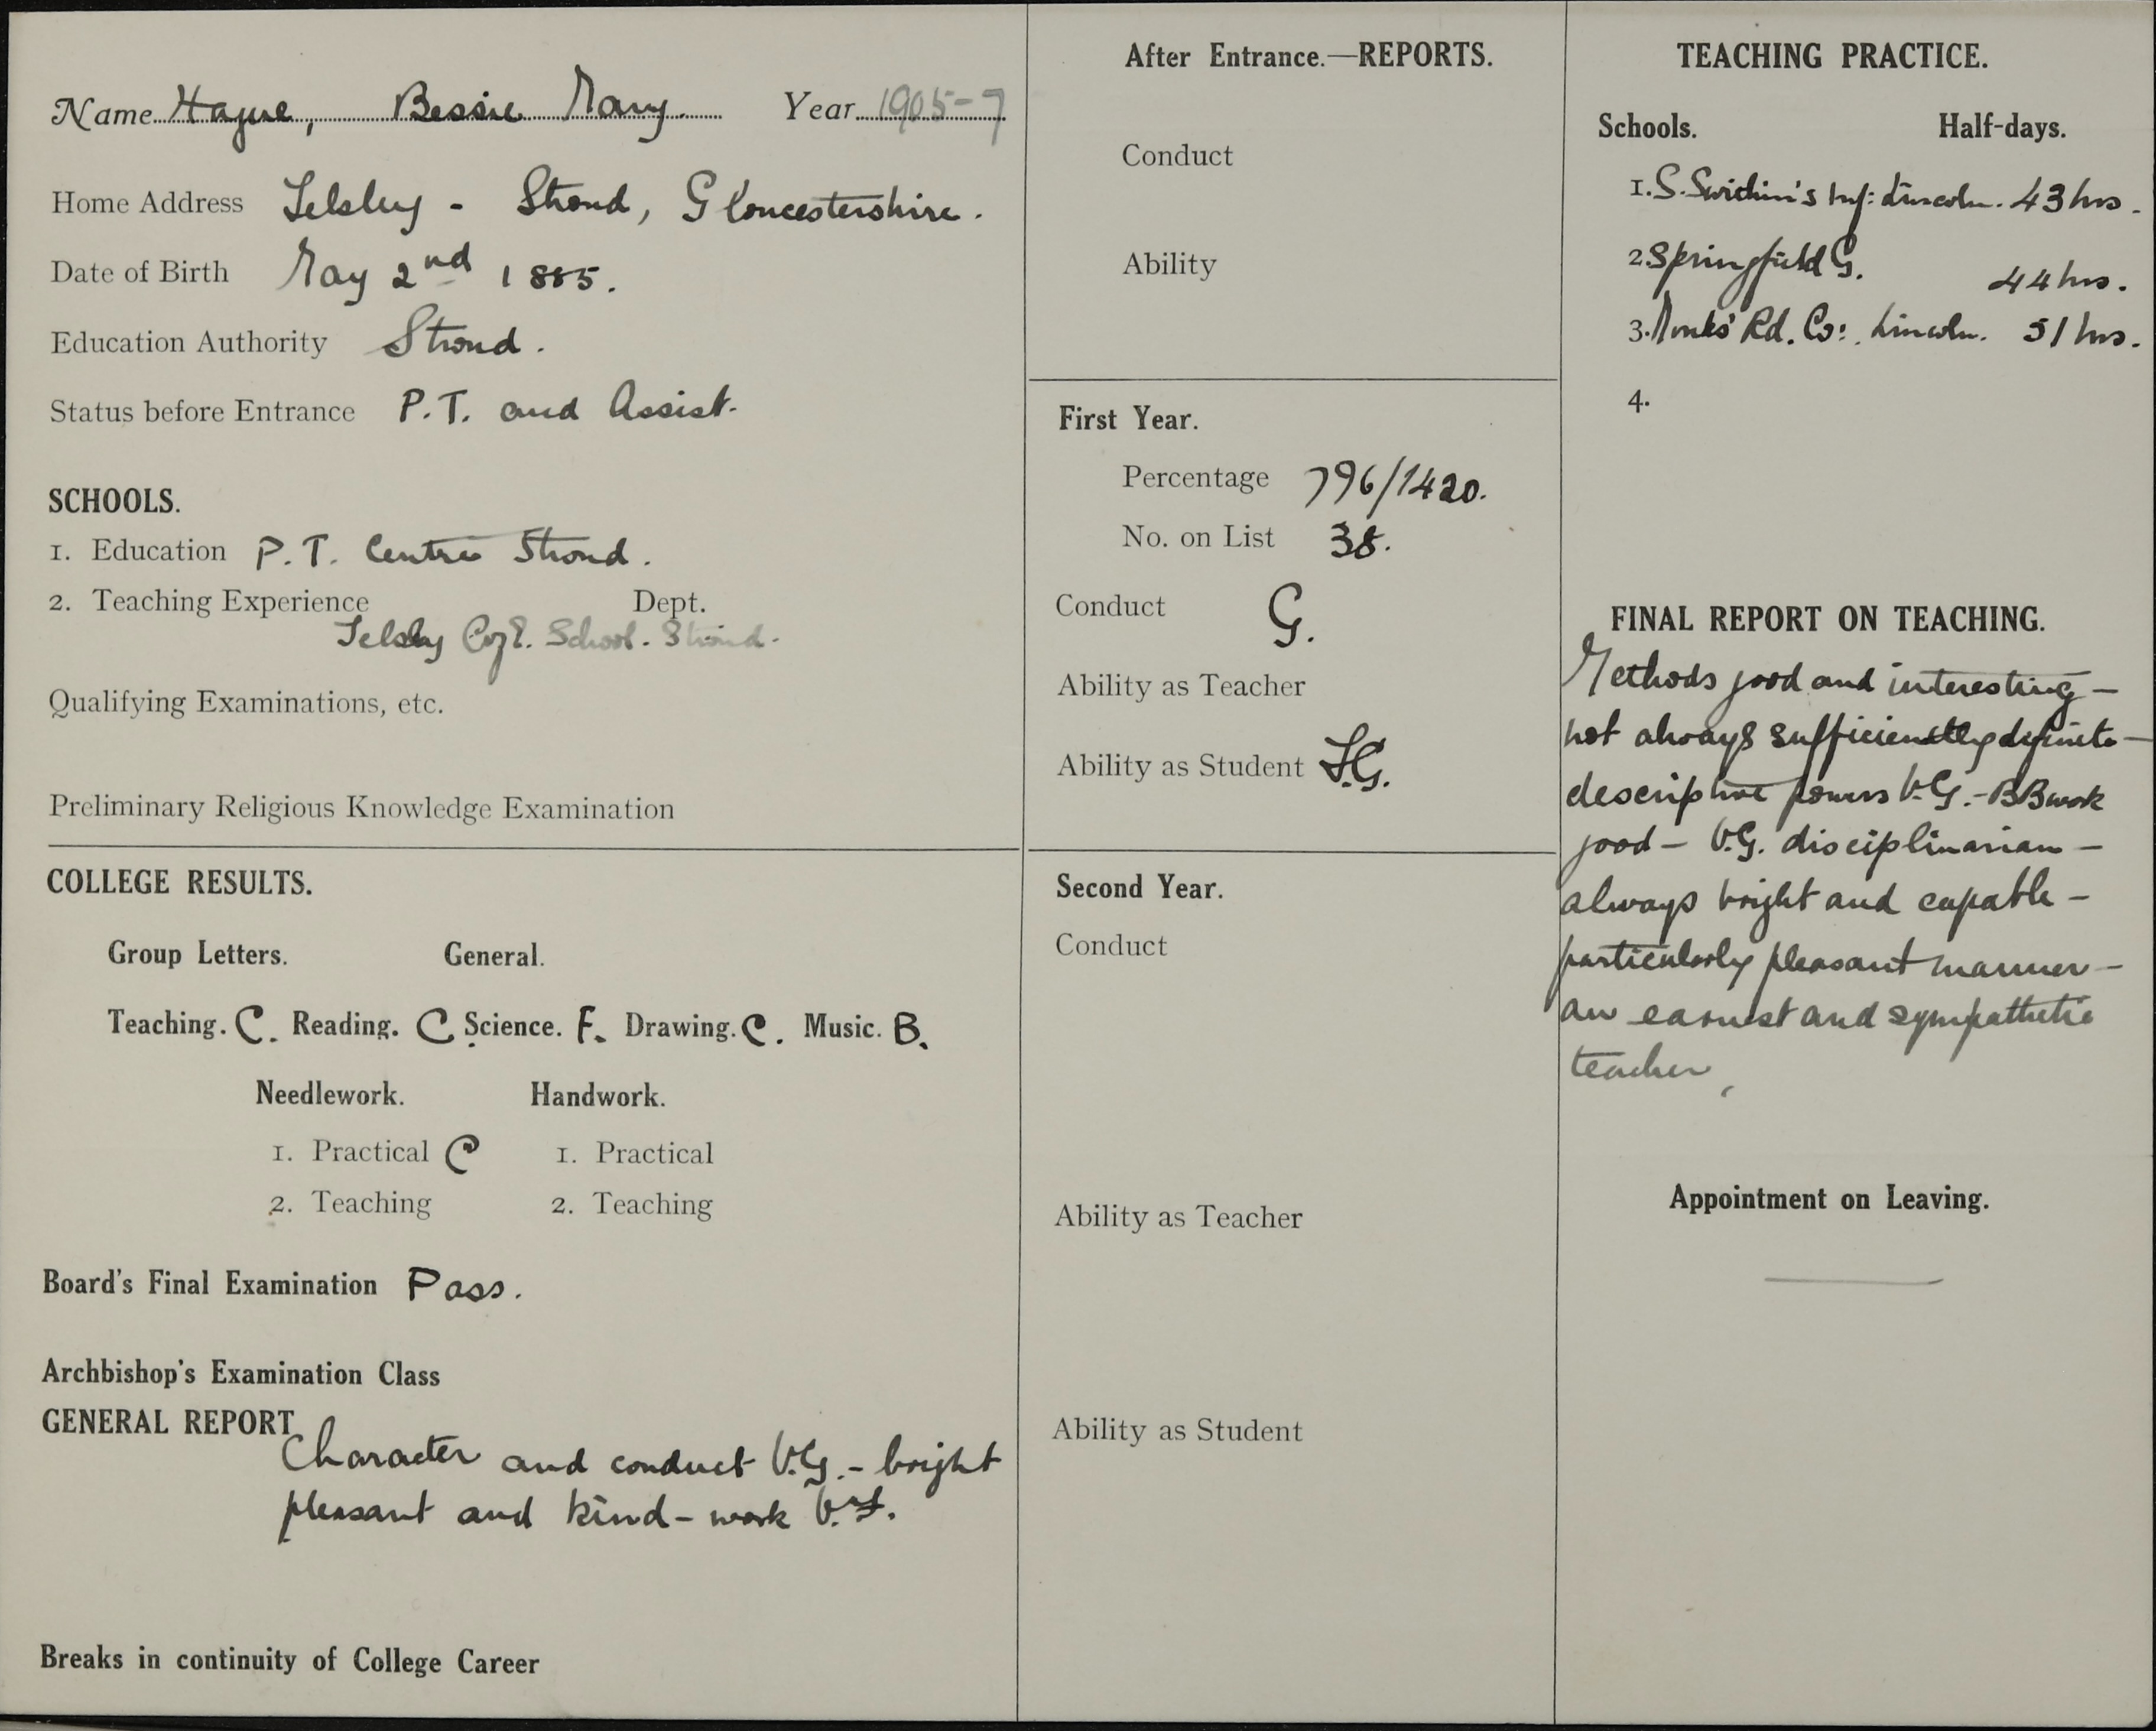 Name Hague, Bessie Mary. Year 1905-7
Home Address Selsley - Stroud, Gloucestershire.
Date of Birth May 2nd 1885.
Education Authority Stroud.
Status before Entrance P.T. and Assist.
SCHOOLS.
1. Education P.T. Centre Stroud.
2. Teaching Experience Dept.
Selsley C of E. School. Stroud.
Qualifying Examinations, etc.
Preliminary Religious Knowledge Examination
COLLEGE RESULTS.
Group Letters. General.
Teaching. C. Reading. C. Science. F. Drawing. C. Music. B.
Needlework. Handwork.
1. Practical C 1. Practical
2. Teaching 2. Teaching
Board's Final Examination Pass.
Archbishop's Examination Class
GENERAL REPORT
Character and conduct V.G. - bright
pleasant and kind - work V.F.
Breaks in continuity of College Career
After Entrance.—REPORTS.
Conduct
Ability
First Year.
Percentage 796/1420.
No. on List 38.
Conduct G.
Ability as Teacher
Ability as Student F.G.
Second Year.
Conduct
Ability as Teacher
Ability as Student
TEACHING PRACTICE.
Schools. Half-days.
1. S. Swithin's Inf: Lincoln. 43 hrs.
2. Springfield G. 44 hrs.
3. Monks' Rd. Co: Lincoln. 51 hrs.
4.
FINAL REPORT ON TEACHING.
Methods good and interesting -
not always sufficiently definite -
descriptive powers V.G. - BB work
good - V.G. disciplinarian -
always bright and capable -
particularly pleasant manner -
an earnest and sympathetic
teacher,
Appointment on Leaving.